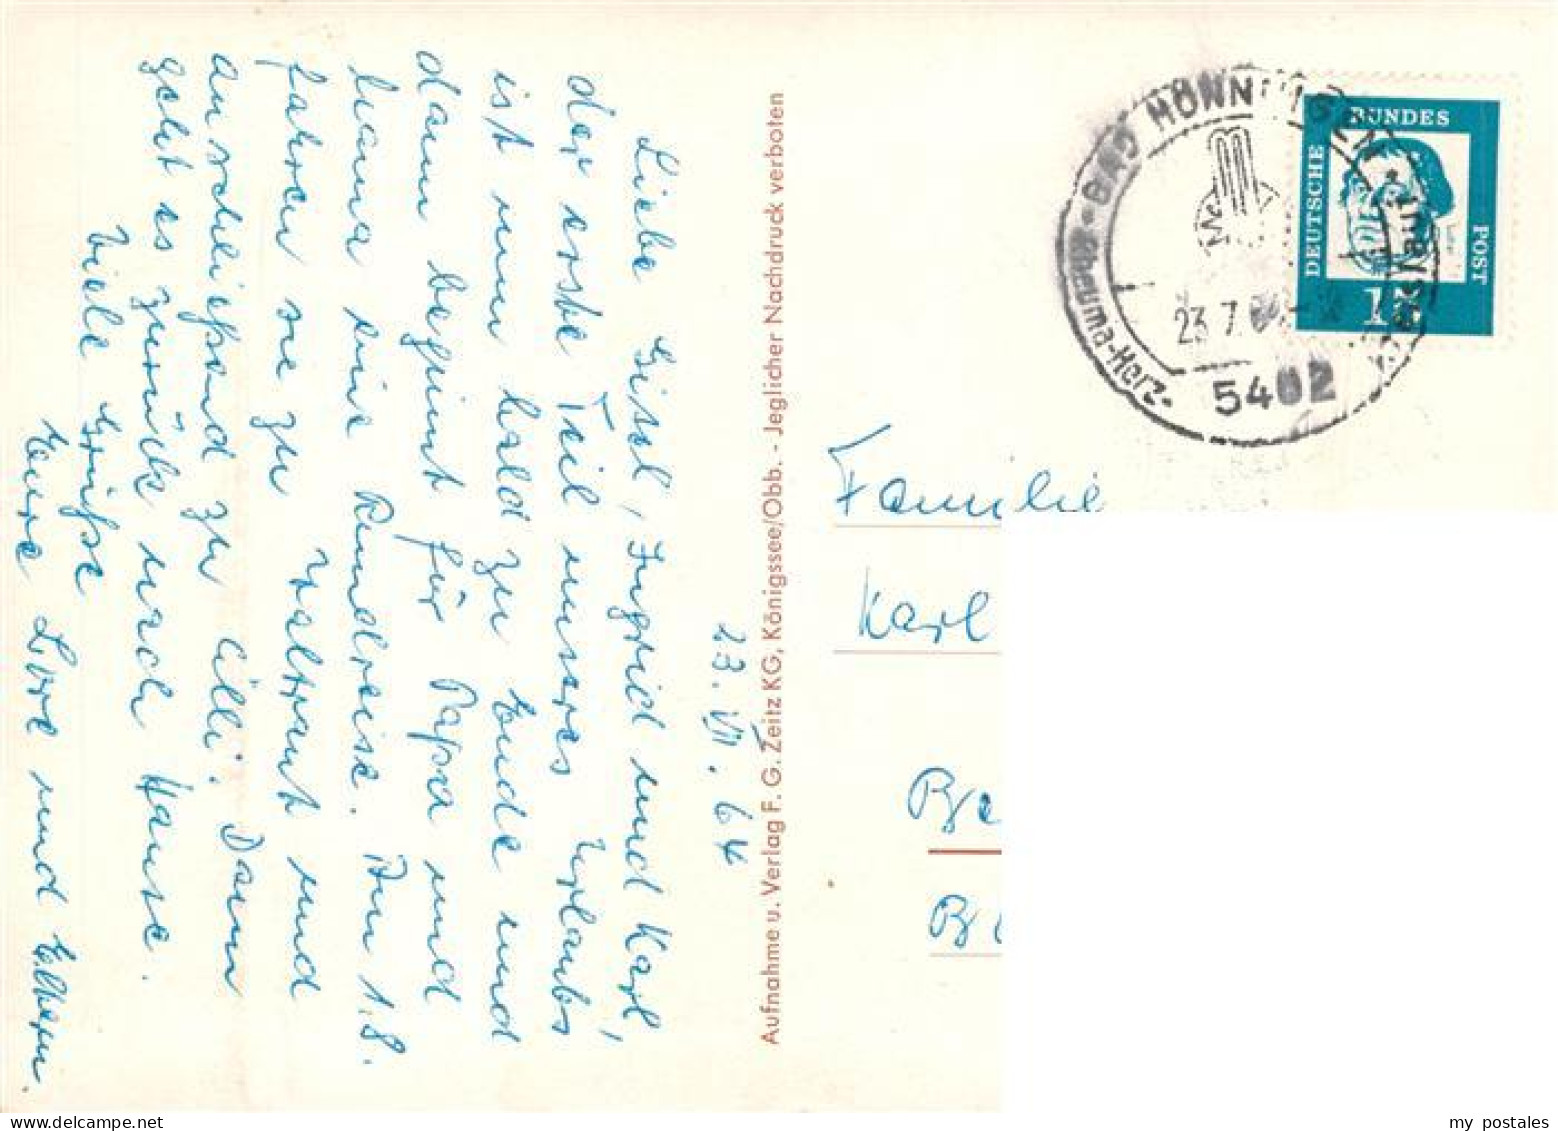 23.VII.64
Liebe Gisel, Ingrid und Karl,
der erste Teil unseres Urlaubs
ist nun bald zu Ende und
dann beginnt für Papa und
Mama eine Rundreise. Am 1.8.
fahren sie zu Waltraut und
anschließend zu Cilli. Dann
geht es zurück nach Hause.
Viele Grüße
Eure Lore und Eltern.
Aufnahme u. Verlag F. G. Zeitz KG, Königssee/Obb. - Jeglicher Nachdruck verboten
BAD HÖNNINGEN
Rheuma-Herz-
Kreislauf
23.7.
5462
DEUTSCHE
BUNDES
POST
15
Familie
Karl
Be
my postales